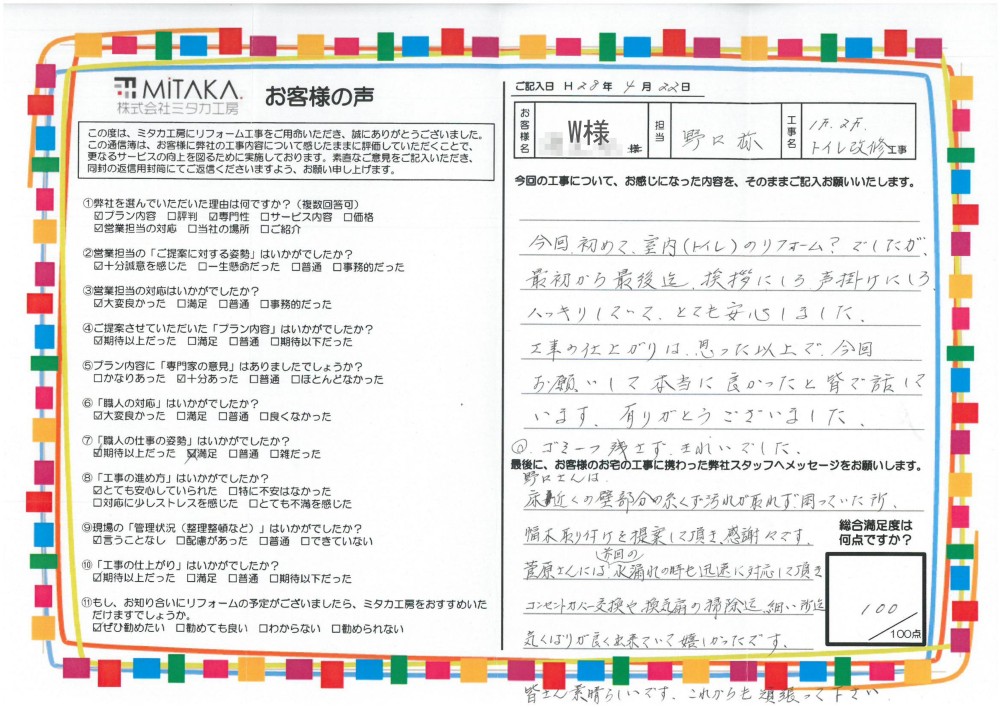 MiTAKA.
株式会社ミタカ工房
お客様の声
この度は、ミタカ工房にリフォーム工事をご用命いただき、誠にありがとうございました。
この通信簿は、お客様に弊社の工事内容について感じたままに評価していただくことで、
更なるサービスの向上を図るために実施しております。素直なご意見をご記入いただき、
同封の返信用封筒にてご返信くださいますよう、お願い申し上げます。
①弊社を選んでいただいた理由は何ですか？（複数回答可）
☑プラン内容 □評判 ☑専門性 □サービス内容 □価格
☑営業担当の対応 □当社の場所 □ご紹介
②営業担当の「ご提案に対する姿勢」はいかがでしたか？
☑十分誠意を感じた □一生懸命だった □普通 □事務的だった
③営業担当の対応はいかがでしたか？
☑大変良かった □満足 □普通 □事務的だった
④ご提案させていただいた「プラン内容」はいかがでしたか？
☑期待以上だった □満足 □普通 □期待以下だった
⑤プラン内容に「専門家の意見」はありましたでしょうか？
□かなりあった ☑十分あった □普通 □ほとんどなかった
⑥「職人の対応」はいかがでしたか？
☑大変良かった □満足 □普通 □良くなかった
⑦「職人の仕事の姿勢」はいかがでしたか？
☑期待以上だった ☑満足 □普通 □雑だった
⑧「工事の進め方」はいかがでしたか？
☑とても安心していられた □特に不安はなかった
□対応に少しストレスを感じた □とても不満を感じた
⑨現場の「管理状況（整理整頓など）」はいかがでしたか？
☑言うことなし □配慮があった □普通 □できていない
⑩「工事の仕上がり」はいかがでしたか？
☑期待以上だった □満足 □普通 □期待以下だった
⑪もし、お知り合いにリフォームの予定がございましたら、ミタカ工房をおすすめいた
だけますでしょうか。
☑ぜひ勧めたい □勧めても良い □わからない □勧められない
ご記入日 H28年 4月 22日
お客様名 W様 様 担当 野口 工事名 1F.2F. トイレ改修工事
今回の工事について、お感じになった内容を、そのままご記入お願いいたします。
今回、初めて、室内(トイレ)のリフォーム？でしたが、
最初から最後迄、挨拶にしろ声掛けにしろ
ハッキリしていて、とても安心しました。
工事の仕上がりは、思った以上で、今回
お願いして本当に良かったと皆で話して
います。有りがとうございました。
◎ゴミ一つ残さず、きれいでした。
最後に、お客様のお宅の工事に携わった弊社スタッフへメッセージをお願いします。
野口さんは
床近くの壁部分の黒くずみ汚れが取れず困っていた所、
幅木取り付けを提案して頂き、感謝々です。
菅原さんには、前回の水漏れの時も迅速に対応して頂き
コンセントカバー交換や換気扇の掃除迄、細い所迄
気くばりが良く出来ていて嬉しかったです。
皆さん素晴らしいです。これからも頑張って下さい
総合満足度は
何点ですか？
100
／100点